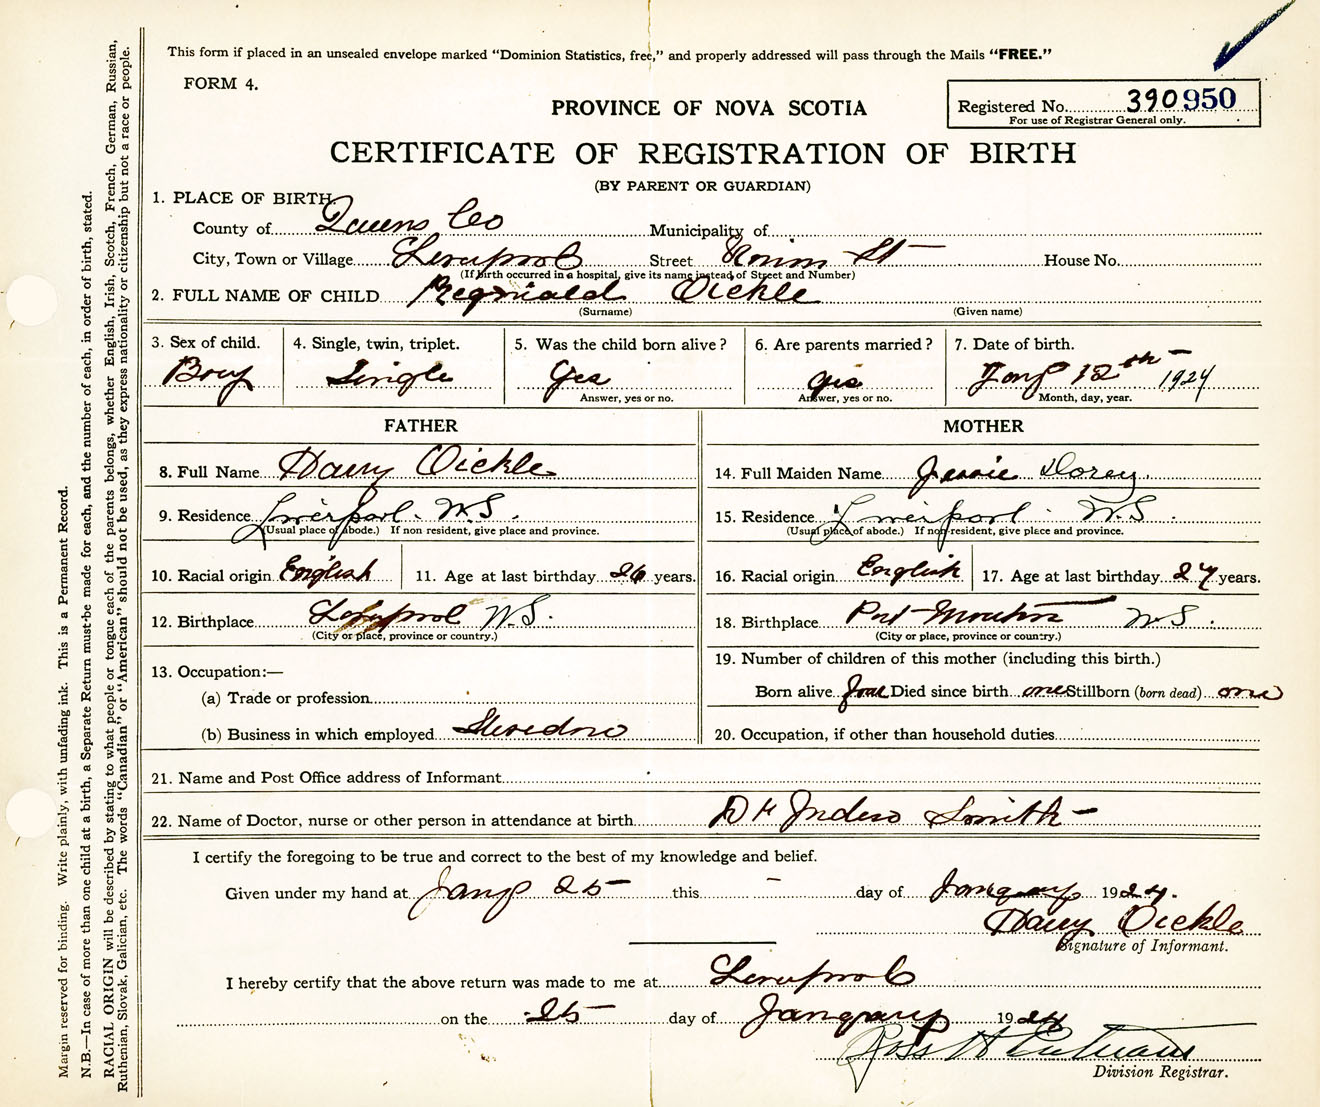 This form if placed in an unsealed envelope marked "Dominion Statistics, free," and properly addressed will pass through the Mails "FREE."
FORM 4.
Registered No. 390950
For use of Registrar General only.
PROVINCE OF NOVA SCOTIA
CERTIFICATE OF REGISTRATION OF BIRTH
(BY PARENT OR GUARDIAN)
1. PLACE OF BIRTH
County of Queens Co Municipality of
City, Town or Village Liverpool Street Union St House No.
(If birth occurred in a hospital, give its name instead of Street and Number)
2. FULL NAME OF CHILD Reginald Oickle
(Surname) (Given name)
3. Sex of child. 4. Single, twin, triplet. 5. Was the child born alive? 6. Are parents married? 7. Date of birth.
Boy Single Yes Yes 12th 1924
Answer, yes or no. Answer, yes or no. Month, day, year.
FATHER MOTHER
8. Full Name Harry Oickle 14. Full Maiden Name Jessie Dorey
9. Residence Liverpool N.S. 15. Residence Liverpool N.S.
(Usual place of abode.) If non resident, give place and province. (Usual place of abode.) If non-resident, give place and province.
10. Racial origin English 11. Age at last birthday 26 years. 16. Racial origin English 17. Age at last birthday 27 years.
12. Birthplace Liverpool N.S. 18. Birthplace Port Mouton N.S.
(City or place, province or country.) (City or place, province or country.)
13. Occupation:— 19. Number of children of this mother (including this birth.)
(a) Trade or profession Born alive four Died since birth one Stillborn (born dead) one
(b) Business in which employed 20. Occupation, if other than household duties
21. Name and Post Office address of Informant
22. Name of Doctor, nurse or other person in attendance at birth Dr Smith
I certify the foregoing to be true and correct to the best of my knowledge and belief.
Given under my hand at 25 this day of January 1924.
Harry Oickle
Signature of Informant.
I hereby certify that the above return was made to me at Liverpool
on the 25 day of January 1924
Ross H
Division Registrar.
Margin reserved for binding. Write plainly, with unfading ink. This is a Permanent Record.
N.B.—In case of more than one child at a birth, a Separate Return must be made for each, and the number of each, in order of birth, stated.
RACIAL ORIGIN will be described by stating to what people or tongue each of the parents belongs, whether English, Irish, Scotch, French, German, Russian,
Ruthenian, Slovak, Galician, etc. The words "Canadian" or "American" should not be used, as they express nationality or citizenship but not a race or people.